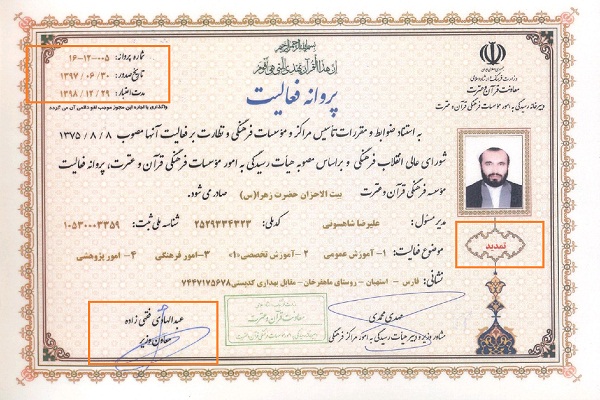 بسم الله الرحمن الرحیم
إن هذا القرآن یهدی للتی هی أقوم
پروانه فعالیت
وزارت فرهنگ و ارشاد اسلامی
معاونت قرآن و عترت
دبیرخانه رسیدگی به امور مؤسسات فرهنگی قرآن و عترت
شماره پروانه: ۰۰۵-۱۲-۱۶
تاریخ صدور: ۳۰ / ۰۶ / ۱۳۹۷
مدت اعتبار: ۲۹ / ۱۲ / ۱۳۹۸
واگذاری یا اجاره این مجوز موجب لغو دائمی آن می گردد
به استناد ضوابط و مقررات تأسیس مراکز و مؤسسات فرهنگی و نظارت بر فعالیت آنها مصوب ۸ / ۸ / ۱۳۷۵
شورای عالی انقلاب فرهنگی و بر اساس مصوبه هیأت رسیدگی به امور مؤسسات فرهنگی قرآن و عترت، پروانه فعالیت
مؤسسه فرهنگی قرآن و عترت بیت الاحزان حضرت زهرا(س) صادر می شود.
مدیر مسئول: علیرضا شاهسونی کد ملی: ۲۵۲۹۳۳۴۳۲۳ شناسه ملی ثبت: ۱۰۵۳۰۰۰۳۳۵۹
موضوع فعالیت: ۱- آموزش عمومی ۲- آموزش تخصصی<۱> ۳-امور فرهنگی ۴- امور پژوهشی
نشانی: فارس - استهبان - روستای ماهفرخان - مقابل بهداری کدپستی۷۴۴۷۱۷۵۶۷۸
تمدید
مهدی محمدی
مشاور وزیر و دبیر هیأت رسیدگی به امور مراکز فرهنگی
معاونت قرآن و عترت
عبدالهادی فقهی زاده
معاون وزیر